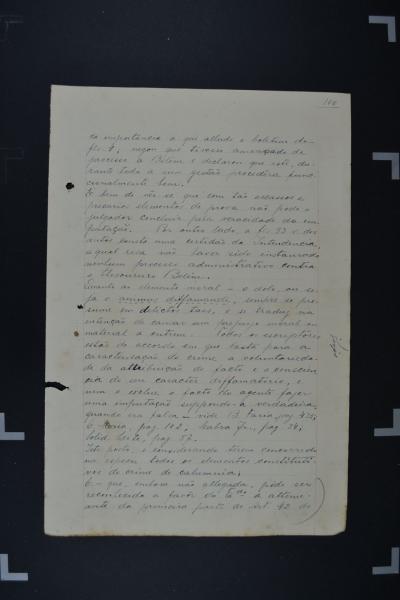 da importancia a que allude o boletim de
fls 4, negou que tivesse ameaçado de
processo a Belém e declarou que este, du-
rante toda a sua gestão procedera func-
cionalmente bem.
É bem de vêr-se que com tão escassos e
precarios elementos de prova não pode o
julgador concluir pela veracidade da im-
putação. Por outro lado a fls. 33 e dos
autos consta uma certidão da Intendencia,
a qual reza não haver sido instaurado
nenhum processo administrativo contra
o thesoureiro Belém.
Quanto ao elemento moral - o dolo, ou se-
ja o animus diffamandi, sempre se pre-
sume em delictos taes, e se traduz na
intenção de causar um prejuizo moral ou
material a outrem. Todos os escriptores
estão de accordo em que basta para a
caracterisação do crime a voluntarieda-
de da attribuição do facto e a conscien-
cia de seu caracter diffamatorio, e
nem o exclue o facto do agente fazer
uma imputação suppondo-a verdadeira,
quando era falsa - vide B. Faria, pag 435;
pag. 112, pag. 34;
pag. 57.
Isto posto, e considerando terem concorrido
na especie todos os elementos constituti-
vos do crime de calumnia;
E - que, embora não allegada, pode ser
reconhecida a favor do a attenu-
ante da primeira parte do art. 42 do